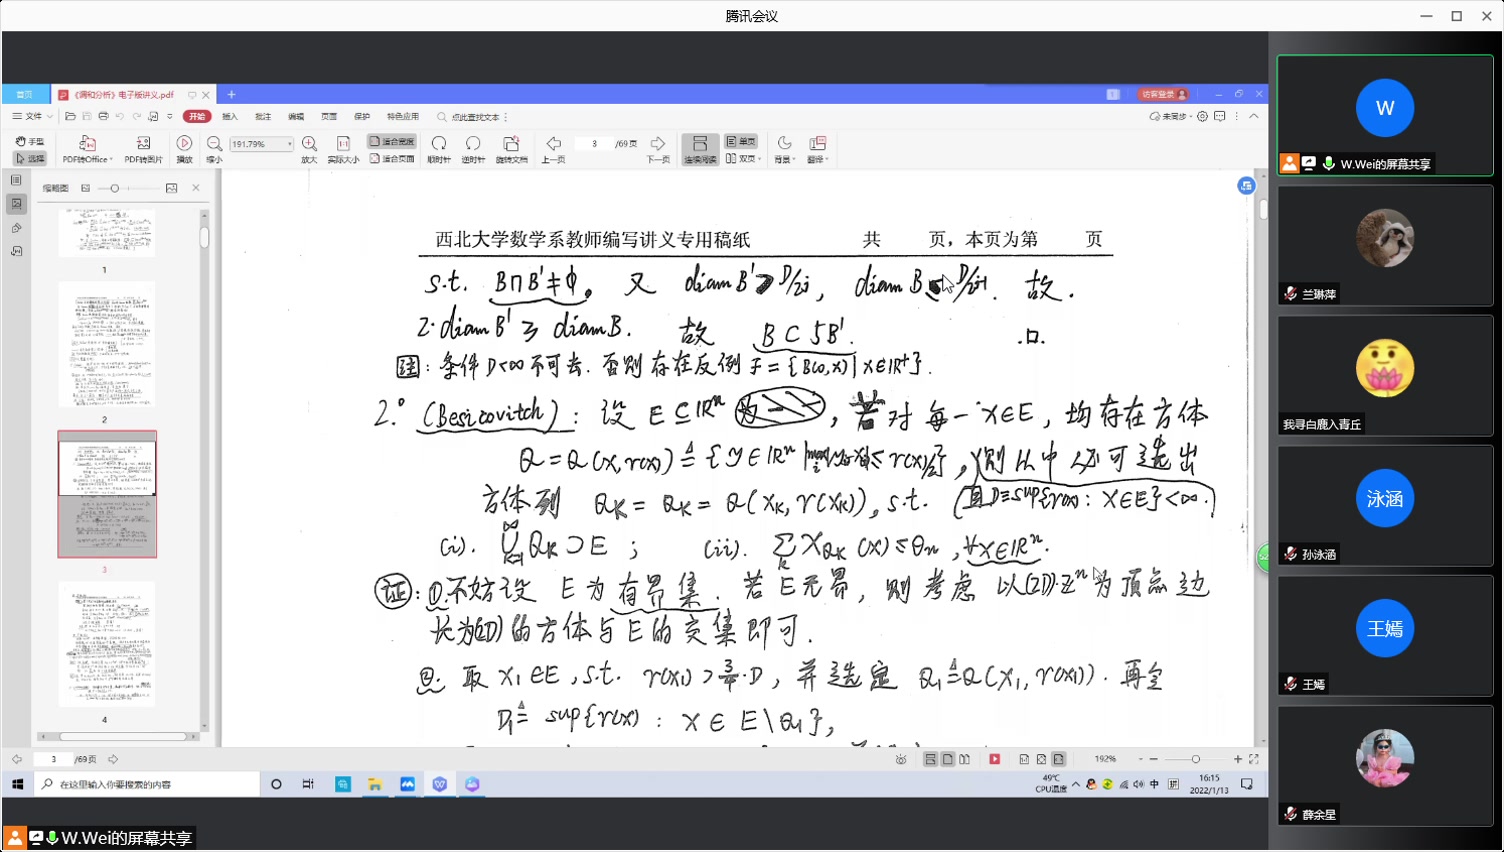 腾讯会议
首页
《调和分析》电子版讲义.pdf
访客登录
文件
开始 插入 批注 编辑 页面 保护 特色应用 点此查找文本
未同步
手型
选择
PDF转Office
PDF转图片
播放
缩小
191.79%
放大
实际大小
适合宽度
适合页面
顺时针
逆时针
旋转文档
上一页
3 /69页
下一页
连续阅读
单页
双页
背景
翻译
缩略图
1
2
3
4
西北大学数学系教师编写讲义专用稿纸 共 页，本页为第 页
s.t. B∩B'≠φ。 又 diam B' > D/2^j, diam B ≤ D/2^{j-1}. 故.
2·diam B' ≥ diam B. 故 B⊂5B'. .口.
注: 条件 D<∞ 不可去. 否则存在反例 F={B(0,x)|x∈R⁺}.
2.° (Besicovitch): 设 E⊆Rⁿ, 若对每一 x∈E, 均存在方体
Q=Q(x,r(x)) ≜ {y∈Rⁿ ≤r(x)}, 则从中必可选出
方体列 Q_K=Q_K=Q(x_K,r(x_K)), s.t. (且 D≡sup{r(x): x∈E}<∞.)
(i). ∪Q_K⊃E ; (ii). Σ_k χ_{Q_K}(x)≤θ_n, ∀x∈Rⁿ.
证: ①不妨设 E为有界集. 若E无界, 则考虑以(2D)·Zⁿ为顶点边
长为(2D)的方体与E的交集即可.
②. 取 x₁∈E, s.t. r(x₁)>¾·D, 并选定 Q₁≜Q(x₁,r(x₁)). 再令
D₁≜ sup{r(x): x∈E\Q₁},
3 /69页
192%
在这里输入你要搜索的内容
49℃
CPU温度
中
16:15
2022/1/13
W.Wei的屏幕共享
W
W.Wei的屏幕共享
兰琳萍
我寻白鹿入青丘
泳涵
孙泳涵
王嫣
王嫣
薛余星